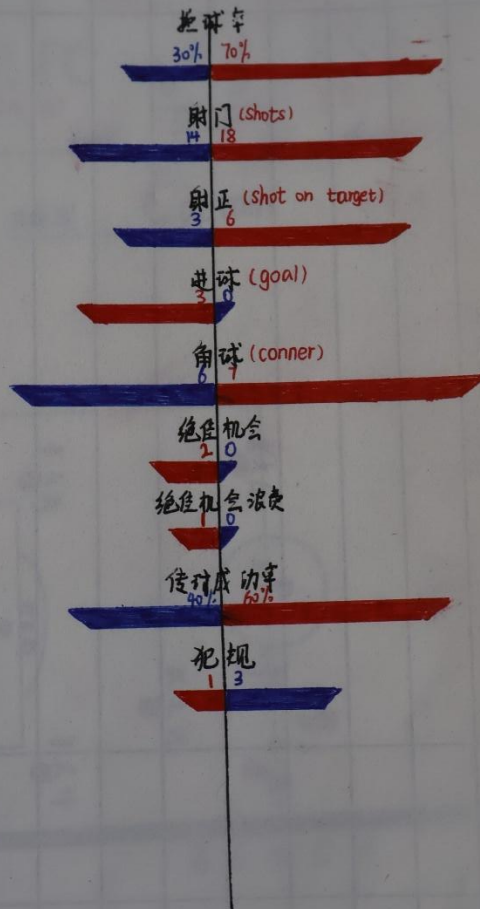 控球率
30% 70%
射门 (shots)
14 18
射正 (shot on target)
3 6
进球 (goal)
3 0
角球 (conner)
6 7
绝佳机会
2 0
绝佳机会浪费
1 0
传球成功率
40% 60%
犯规
1 3